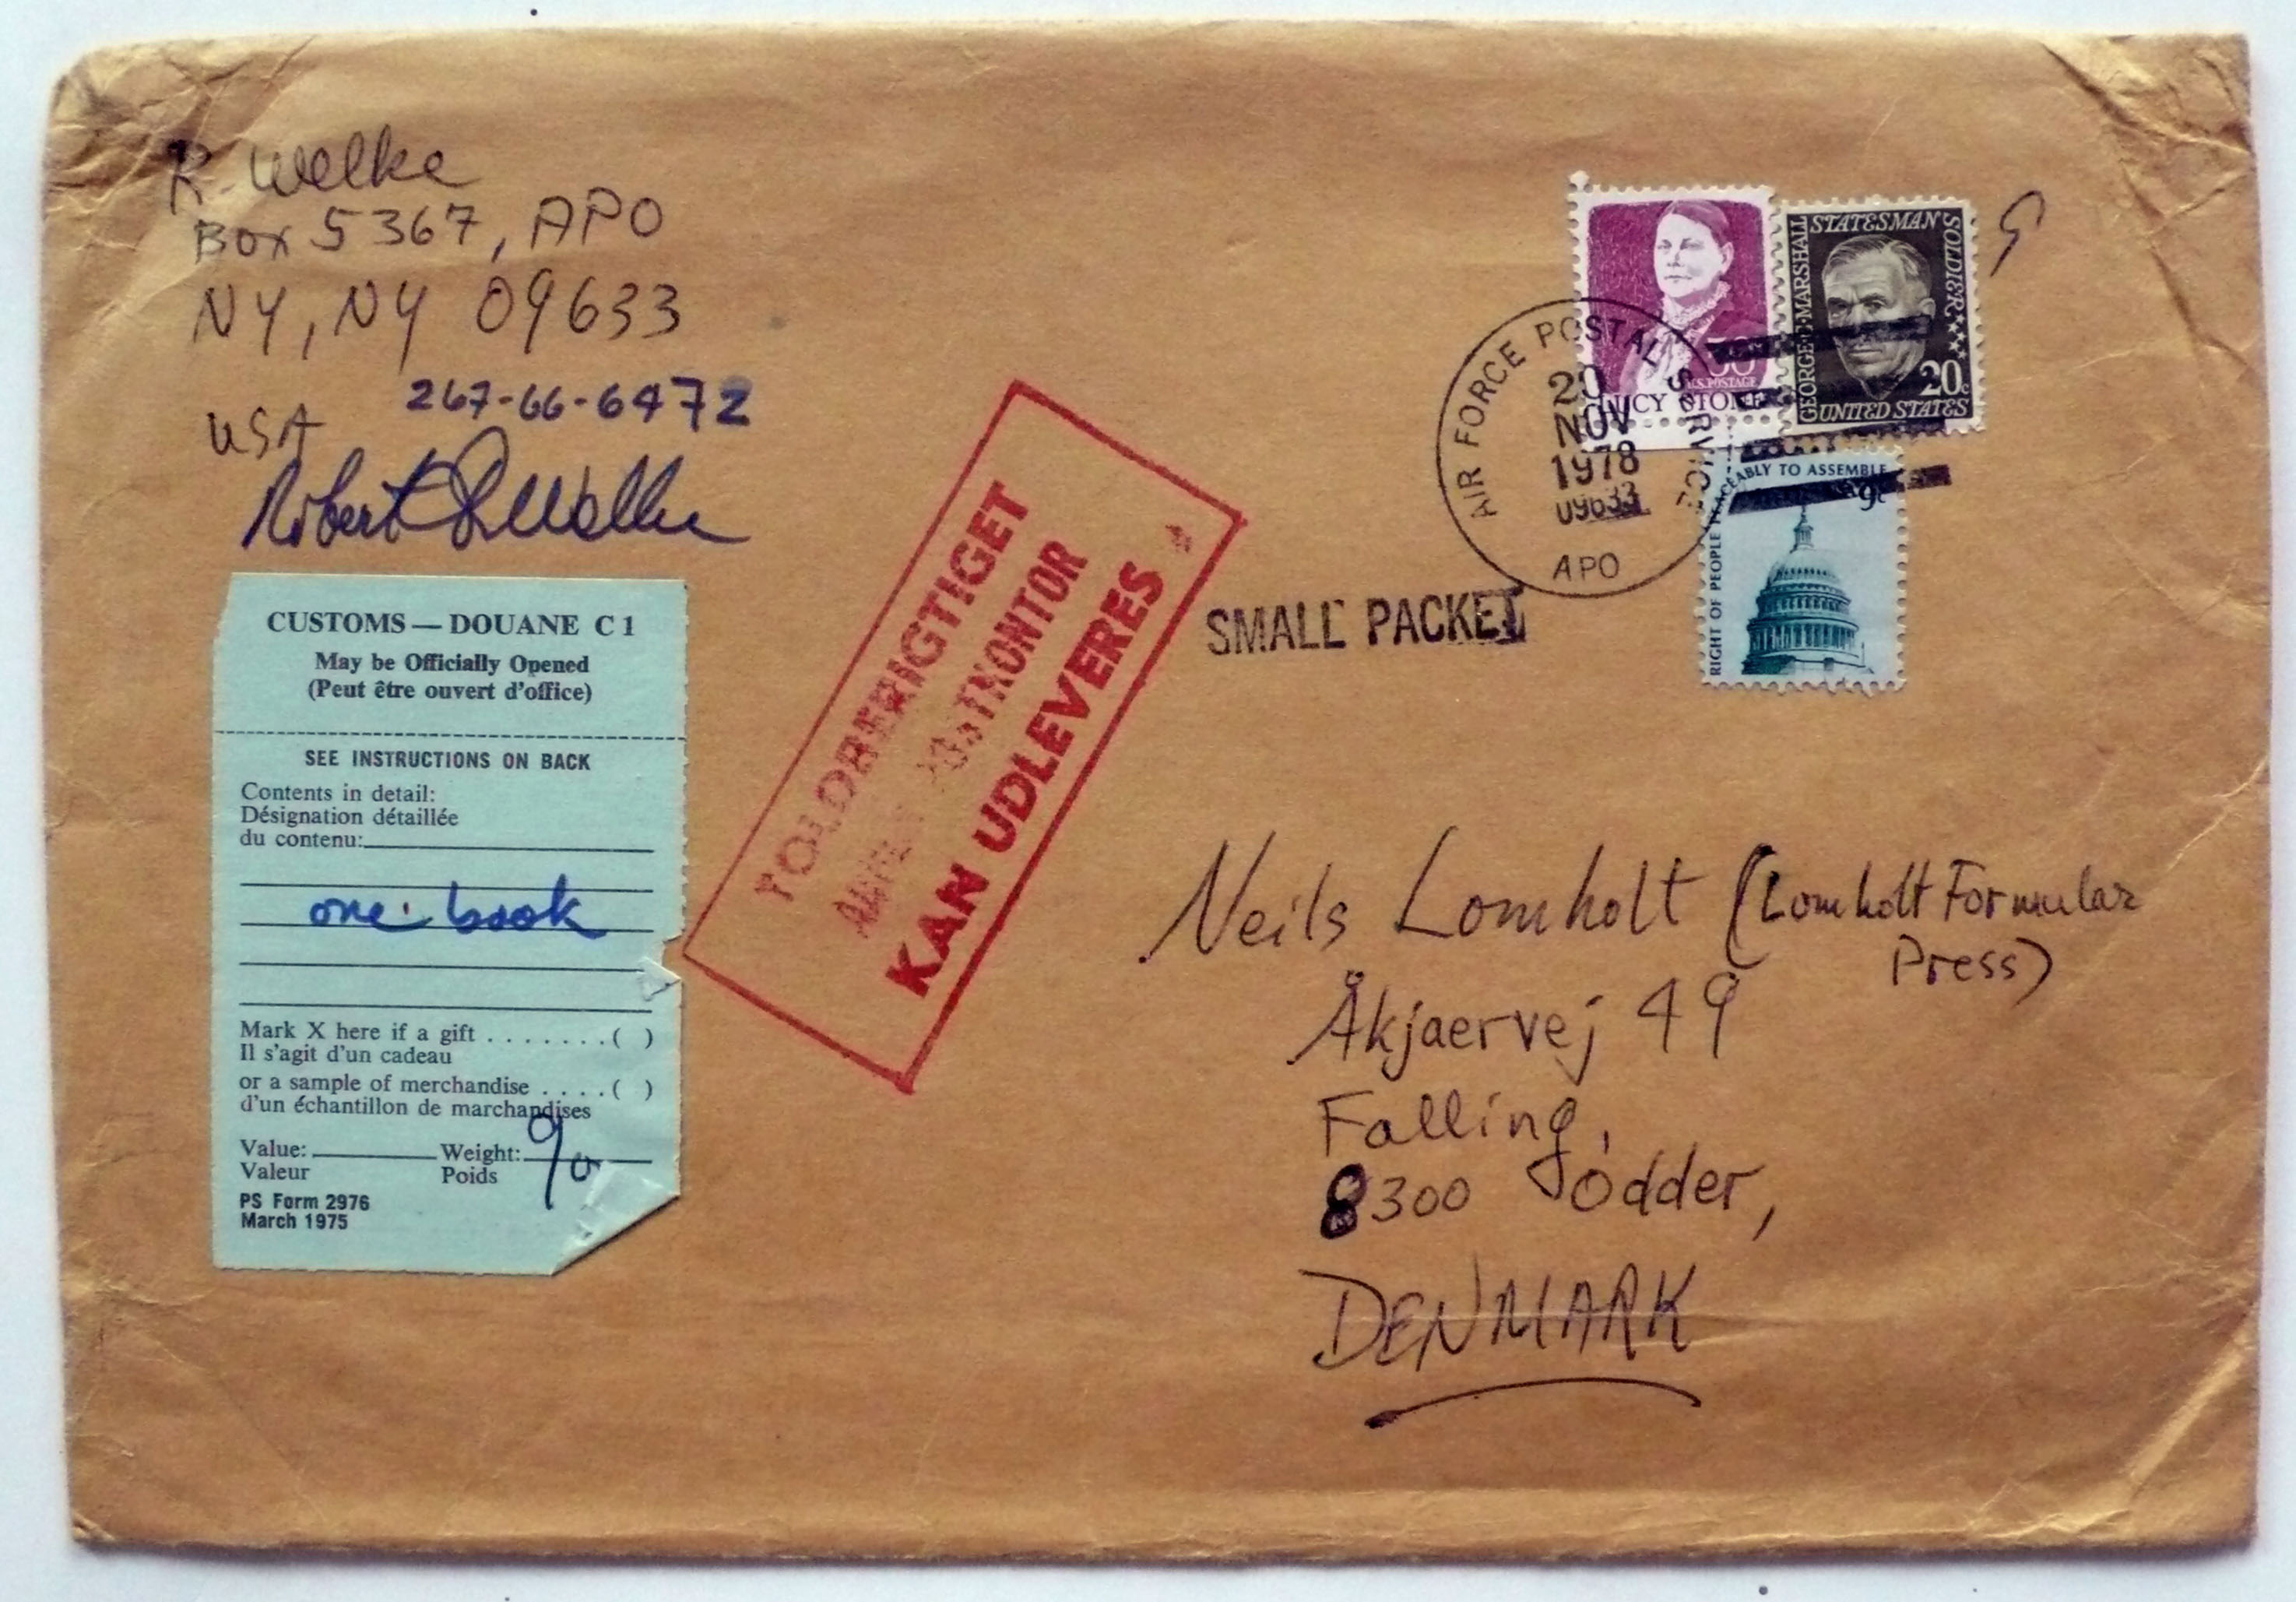 R. Welke
Box 5367, APO
NY, NY 09633
USA
267-66-6472
Robert
CUSTOMS — DOUANE C 1
May be Officially Opened
(Peut être ouvert d'office)
SEE INSTRUCTIONS ON BACK
Contents in detail:
Désignation détaillée
du contenu:
one book
Mark X here if a gift . . . . . . . ( )
Il s'agit d'un cadeau
or a sample of merchandise . . . . ( )
d'un échantillon de marchandises
Value: Weight:
Valeur Poids
PS Form 2976
March 1975
TOLDBERIGTIGET
POSTKONTOR
KAN UDLEVERES
SMALL PACKET
AIR FORCE POSTAL SERVICE
20
NOV
1978
09633
APO
U.S. POSTAGE
LUCY STONE
GEORGE C. MARSHALL
STATESMAN SOLDIER
20c
UNITED STATES
RIGHT OF PEOPLE PEACEABLY TO ASSEMBLE
9c
Neils Lomholt (Lomholt Formular
Press)
Åkjaervej 49
Falling,
8300 Odder,
DENMARK